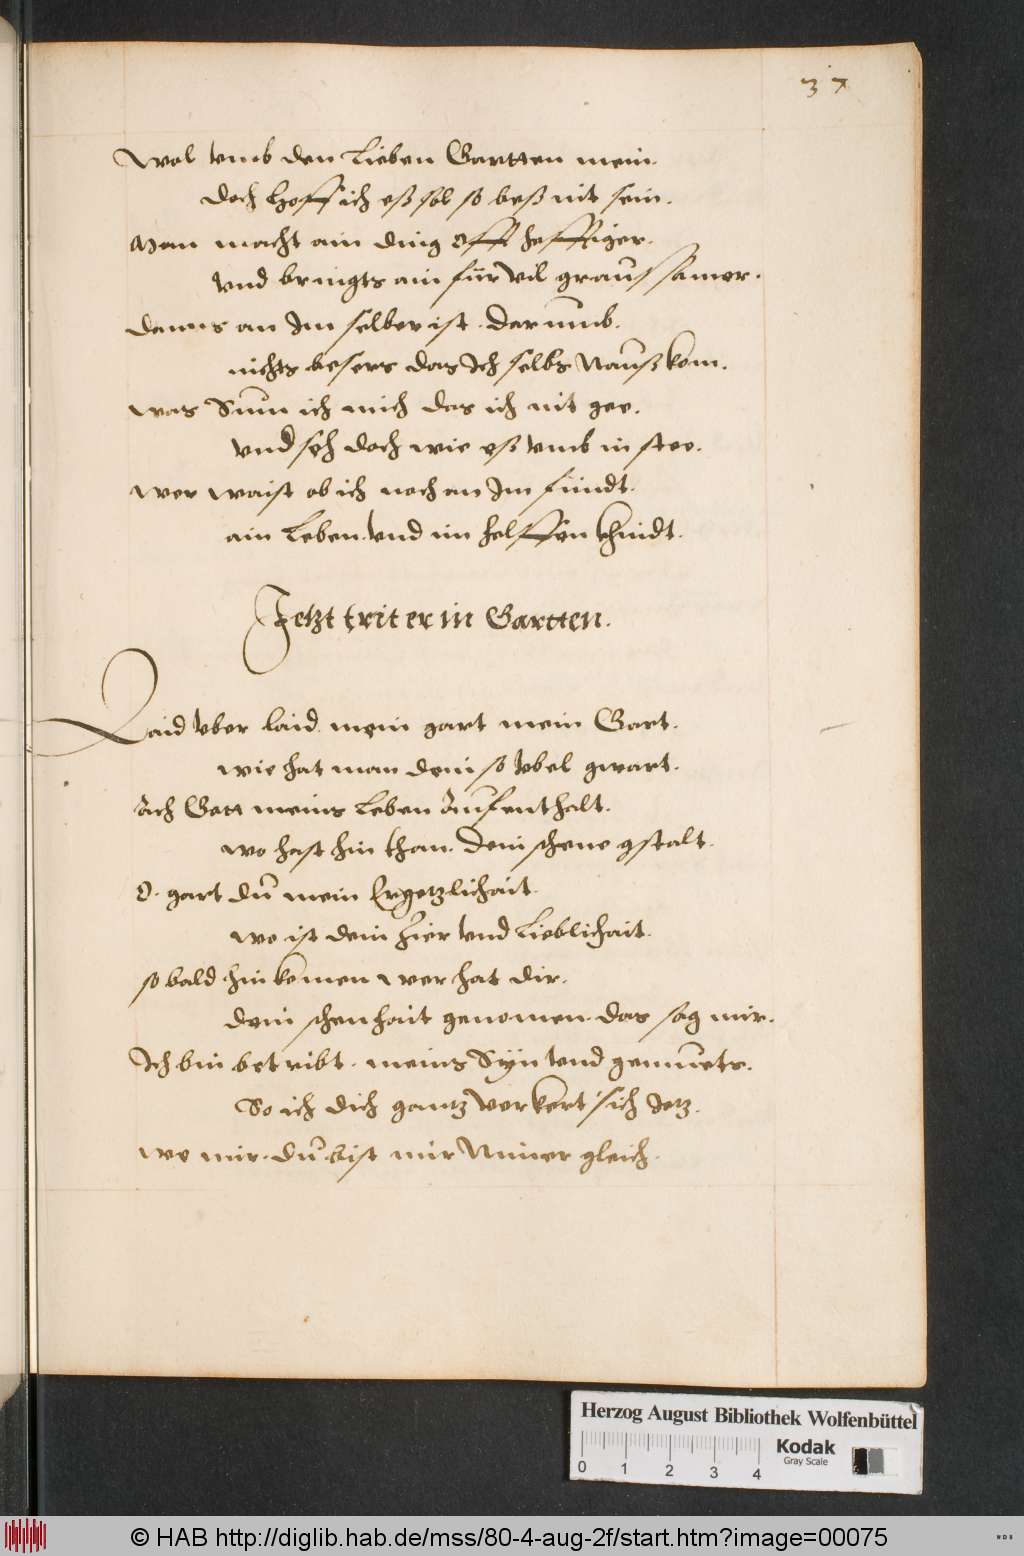 37
Wol vmb den lieben Gartten mein.
doch hoff ich eß sol so beß nit sein.
Man macht ain ding offt hefftiger.
vnd bringts ain für vil graussamer.
danns an Im selber ist. darumb.
nichts besers das Ich selbs Nauß kom.
was Sum ich mich das ich nit gee.
vnd seh doch wie eß vmb in stee.
wer waist ob ich noch an Im fündt.
ain leben. vnd im helffen khindt.
Jetzt trit er in Gartten.
Laid vber laid. mein gart mein Gart.
wie hat man dein so vbel gwart.
Ach Gott meins leben Aufenthalt.
wo hast hin than. dein schene gstalt.
O. gart du mein Ergetzlichait.
wo ist dein zier vnd lieblichait.
so bald hin komen wer hat dir.
dein schenhait genomen. das sag mir.
Ich bin betribt. meins Syn vnd gemuets.
So ich dich gantz verkert sich Jetz.
we mir. du bist mir Nimer gleich.
Herzog August Bibliothek Wolfenbüttel
0 1 2 3 4
Kodak
Gray Scale
© HAB http://diglib.hab.de/mss/80-4-aug-2f/start.htm?image=00075